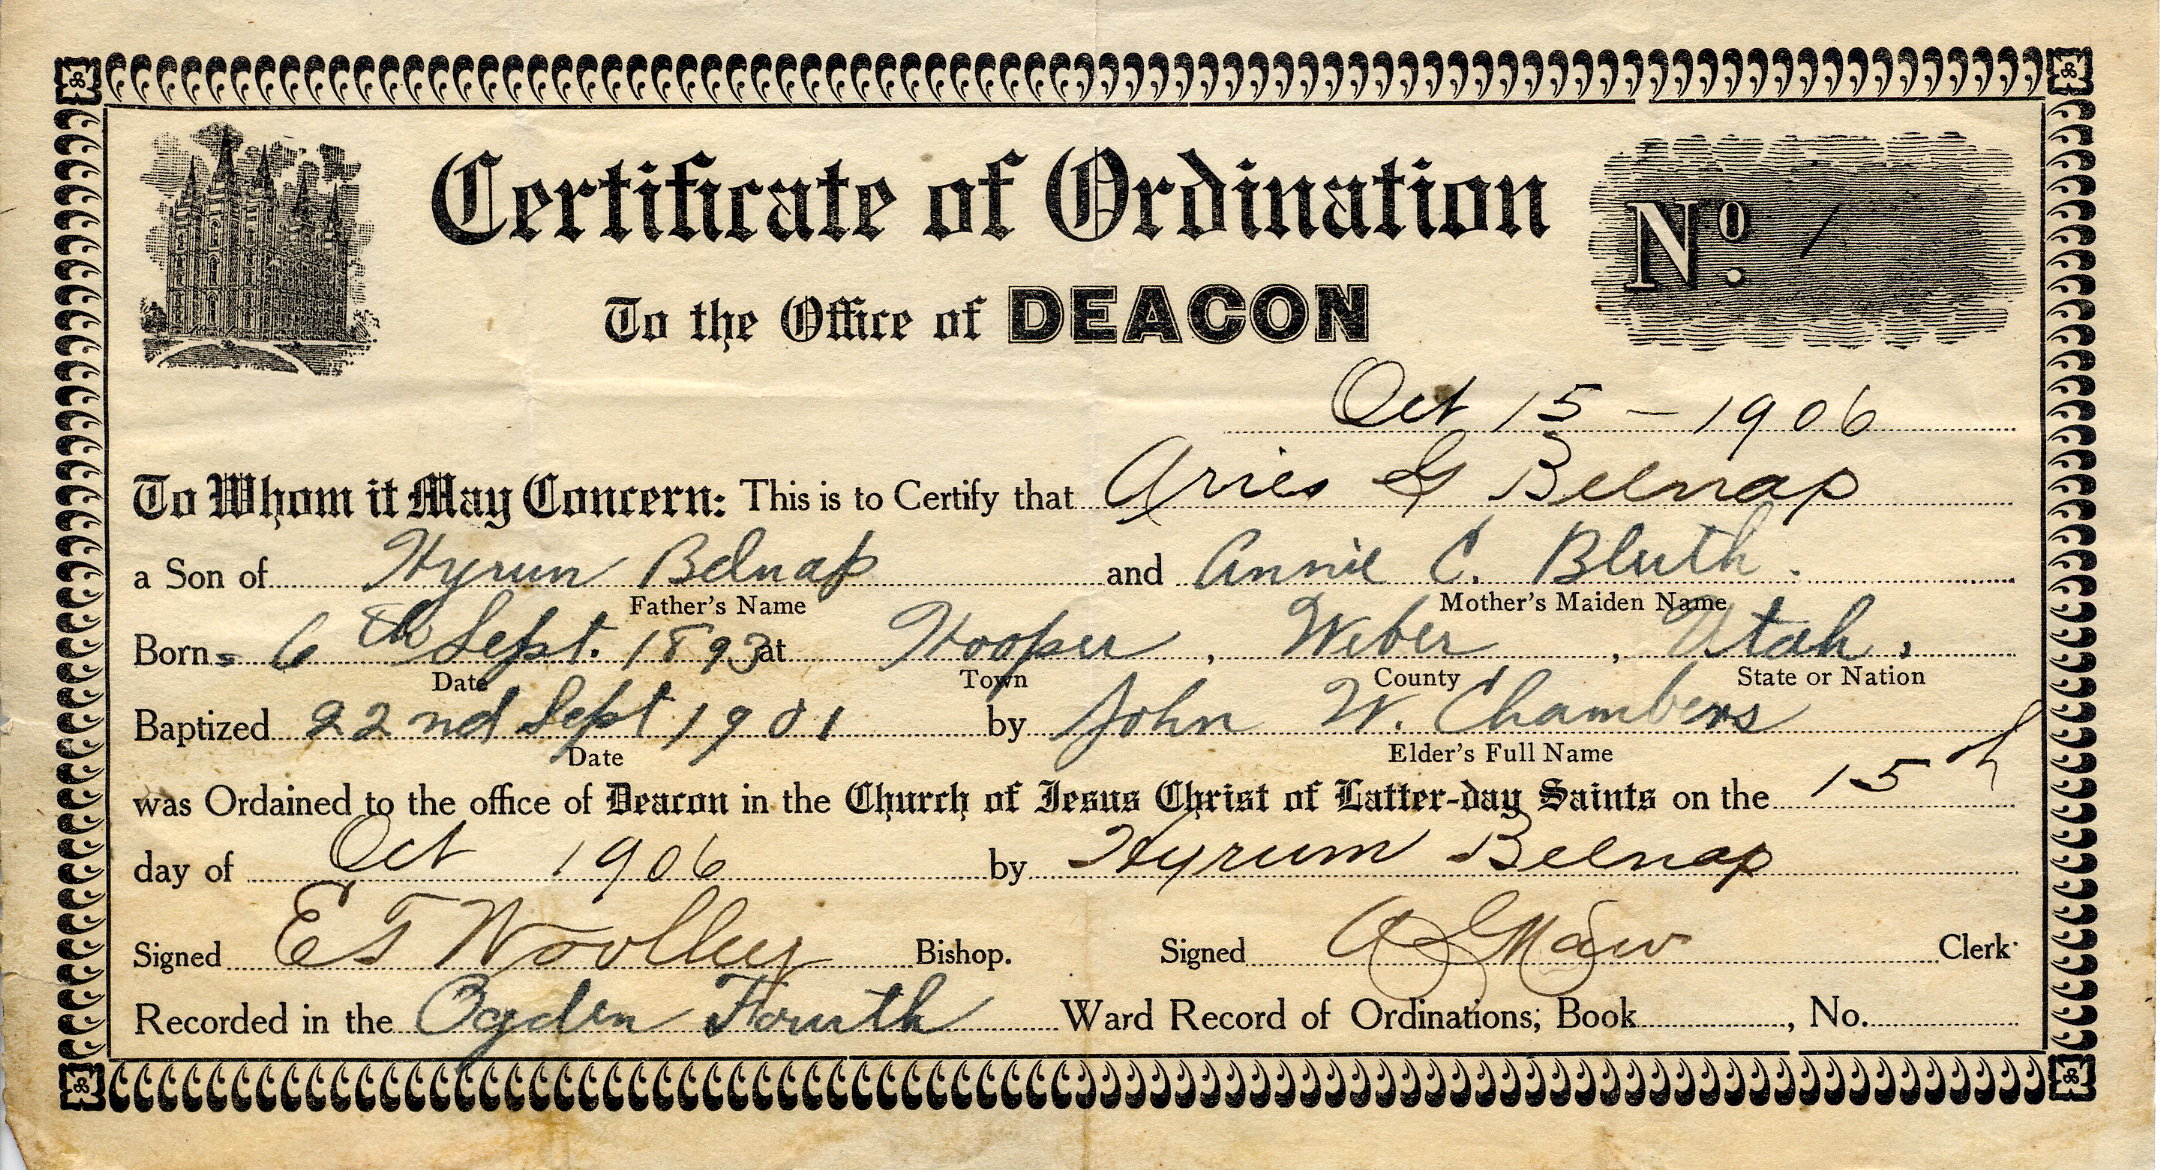 Certificate of Ordination
No. 1
To the Office of DEACON
Oct 15 - 1906
To Whom it May Concern: This is to Certify that Aries G Belnap
a Son of Hyrum Belnap and Annie C. Bluth.
Father's Name Mother's Maiden Name
Born 6th Sept. 1893 at Hooper, Weber, Utah.
Date Town County State or Nation
Baptized 22nd Sept 1901 by John W. Chambers
Date Elder's Full Name
was Ordained to the office of Deacon in the Church of Jesus Christ of Latter-day Saints on the 15th
day of Oct 1906 by Hyrum Belnap
Signed E T Woolley Bishop. Signed Clerk
Recorded in the Ogden Fourth Ward Record of Ordinations; Book , No.